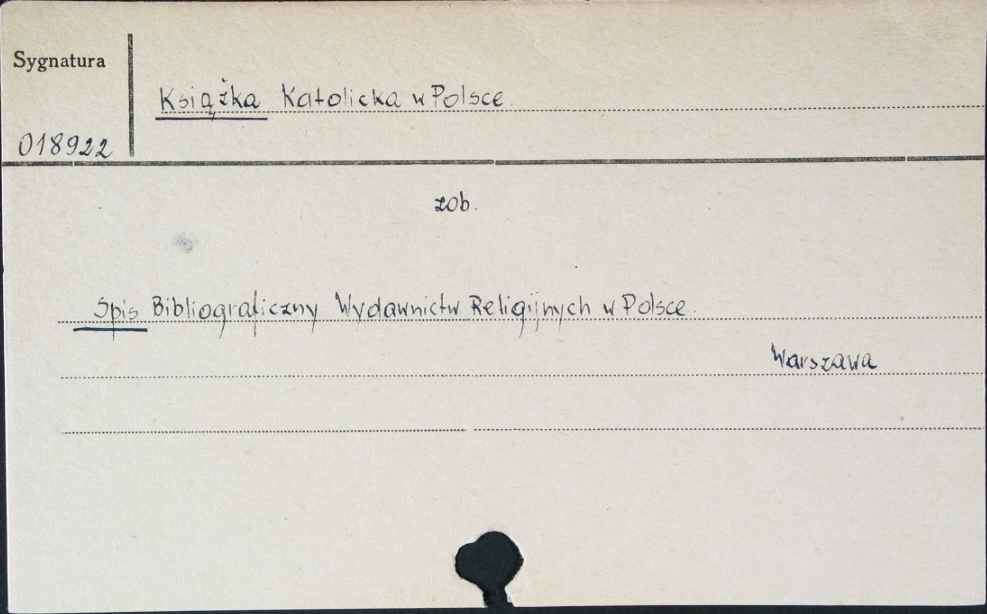 Sygnatura
Książka Katolicka w Polsce.
018922
zob.
Spis Bibliograficzny Wydawnictw Religijnych w Polsce.
Warszawa